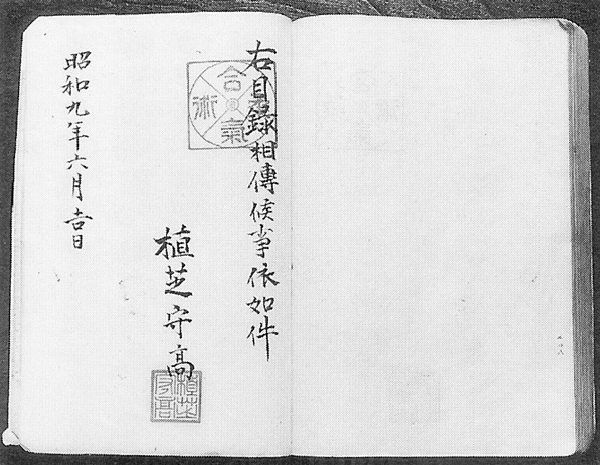 右目錄相傳候事依如件
合氣
術
植芝守高
植芝
守高
昭和九年六月吉日